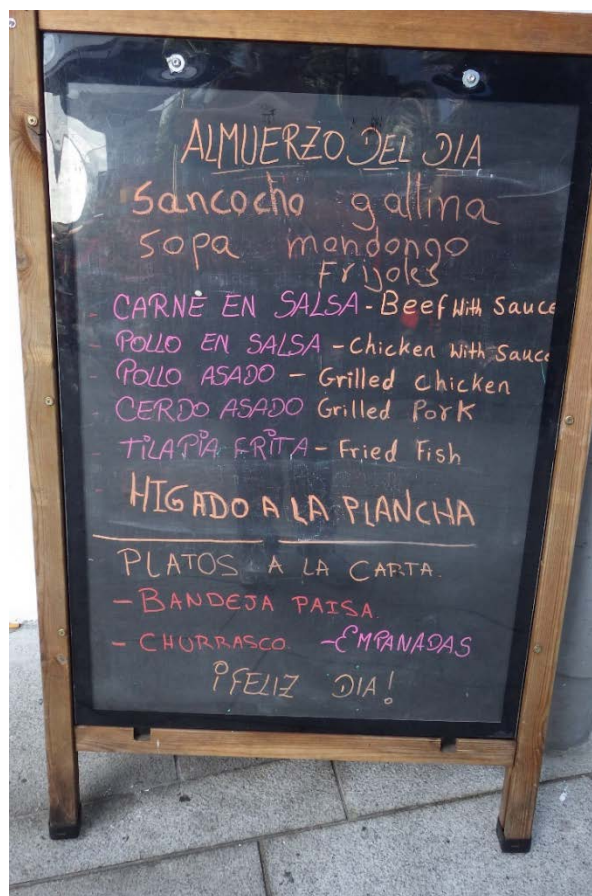 ALMUERZO DEL DIA
Sancocho gallina
Sopa mondongo
Frijoles
- CARNE EN SALSA - Beef With Sauce
- POLLO EN SALSA - Chicken With Sauce
- POLLO ASADO - Grilled Chicken
- CERDO ASADO Grilled Pork
- TILAPIA FRITA - Fried Fish
- HIGADO A LA PLANCHA
PLATOS A LA CARTA.
- BANDEJA PAISA.
- CHURRASCO. - EMPANADAS
¡FELIZ DIA!